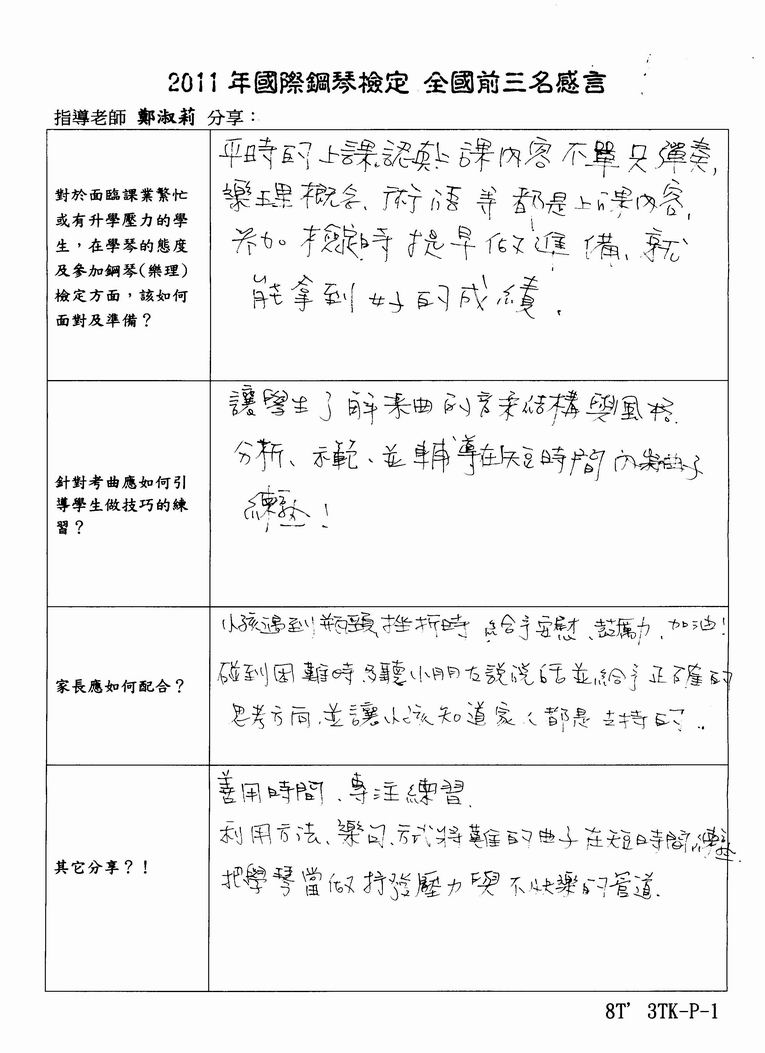 2011 年國際鋼琴檢定 全國前三名感言
指導老師 鄭淑莉 分享：
對於面臨課業繁忙
或有升學壓力的學
生，在學琴的態度
及參加鋼琴(樂理)
檢定方面，該如何
面對及準備？
平時的上課認真上課內容不單只彈奏,
樂理概念、術語等都是上課內容,
參加檢定時提早做準備、就
能拿到好的成績.
針對考曲應如何引
導學生做技巧的練
習？
讓學生了解樂曲的音樂結構與風格.
分析、示範、並輔導在短時間內
練熟！
家長應如何配合？
小孩遇到瓶頸、挫折時 給予安慰、鼓勵、加油！
碰到困難時多聽小朋友說說話並給予正確的
思考方向、並讓小孩知道家人都是支持的..
其它分享？！
善用時間、專注練習.
利用方法、樂句、方式將難的曲子在短時間練熟.
把學琴當做抒發壓力與不快樂的管道.
8T’ 3TK-P-1